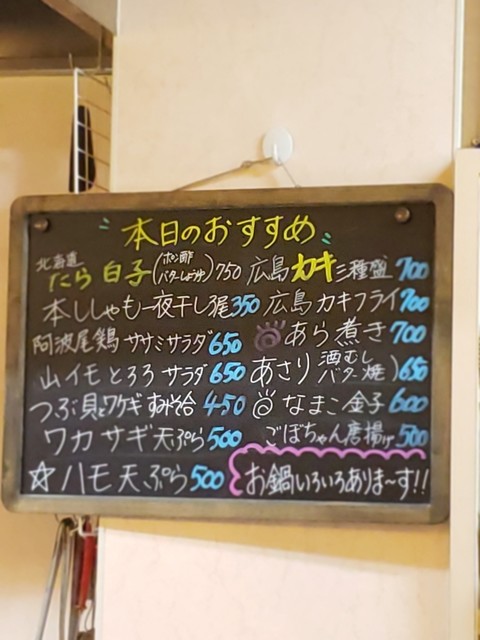 本日のおすすめ
北海道 たら白子(ポン酢 バターしょうゆ) 750
本ししゃも一夜干し3尾 350
阿波尾鶏ササミサラダ 650
山イモとろろサラダ 650
つぶ貝とワケギすみそ合 450
ワカサギ天ぷら 500
☆ハモ天ぷら 500
広島カキ三種盛 700
広島カキフライ 700
あら煮き 700
あさり(酒むし バター焼) 650
なまこ 600
ごぼちゃん唐揚げ 500
お鍋いろいろありま〜す!!